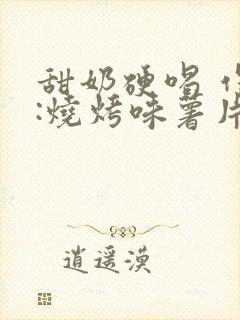 甜奶硬唱
:燒烤味薯片
逍遥漠